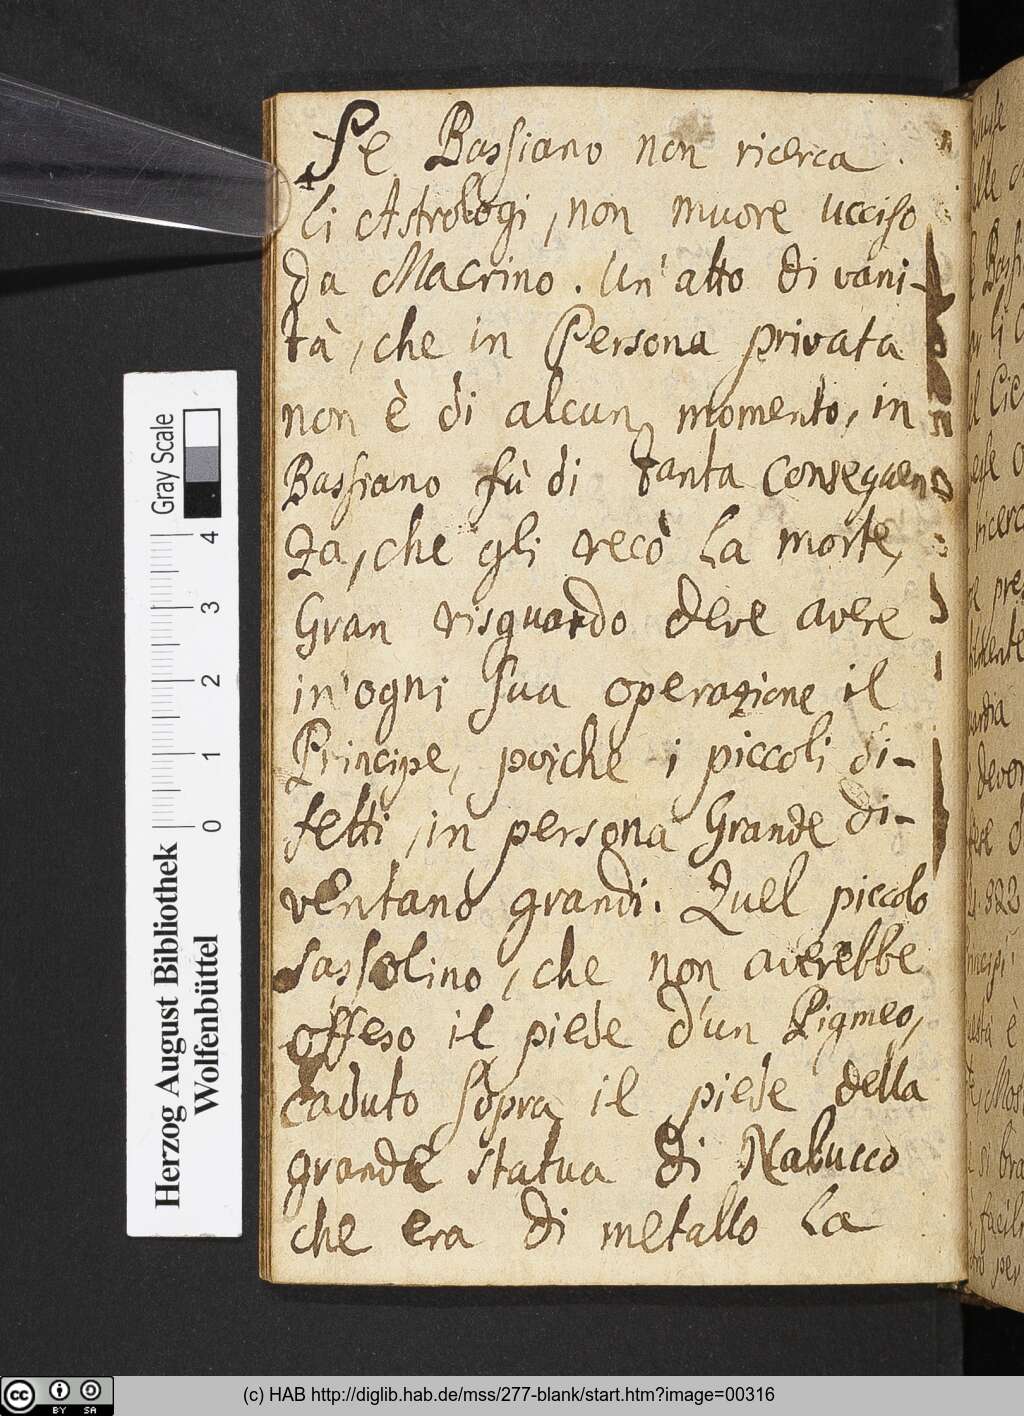 Se Bassiano non ricerca
li Astrologi, non muore ucciso
da Macrino. Un' atto di vani-
tà, che in Persona privata
non è di alcun momento, in
Bassiano fù di tanta conseguen
za, che gli recò la morte,
Gran risguardo deve avere
in'ogni sua operazione il
Principe, poiche i piccoli di-
fetti, in persona Grande di-
ventano grandi. Quel piccolo
sassolino, che non averebbe
offeso il piede d'un Pigmeo,
caduto sopra il piede della
grande statua di Nabucco
che era di metallo la
Gray Scale
0 1 2 3 4
Herzog August Bibliothek
Wolfenbüttel
cc BY SA
(c) HAB http://diglib.hab.de/mss/277-blank/start.htm?image=00316